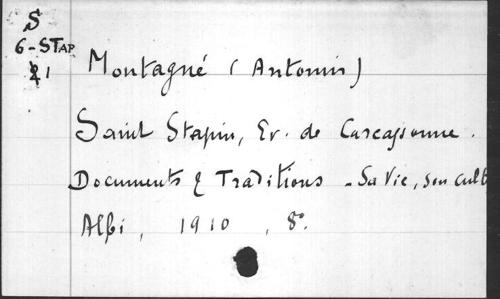 S
6-STAP
1
Montagné (Antonin)
Saint Stapin, Ev. de Carcassonne.
Documents & Traditions - Sa Vie, son cult
Albi, 1910, 8°.